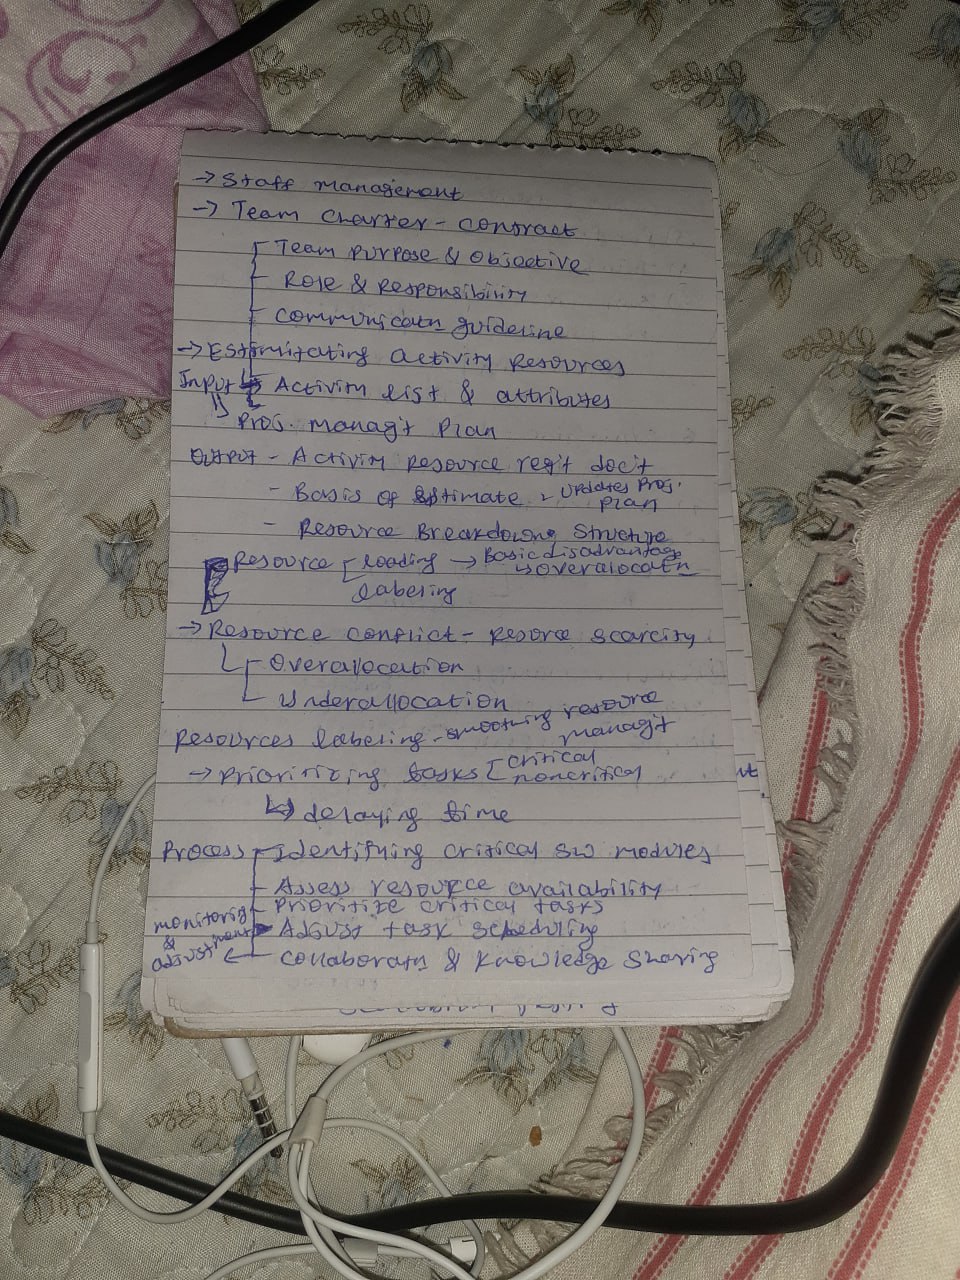 → Staff management
→ Team Charter - contract
Team purpose & objective
Role & Responsibility
communicatn guideline
→ Estimitating activity resources
Input - Activity list & attributes
- Proj. managt Plan
Output - Activity resource reqt doc't
- Basis of Estimate - updates Proj. plan
- Resource Breakdown Structure
Resource loading → Basic disadvantage
↳ overalocatn
labeling
→ Resource conflict - resorce scarcity
Overalocation
underallocation
Resources labeling - smoothing resource managt
→ Prioritizing tasks critical
noncritical
↳ delaying time
Process - Identifying critical sw modules
- Assess resource availability
- Prioritize critical tasks
- Adjust task scheduling
monitorig & adjustment ← collaboratn & knowledge sharing